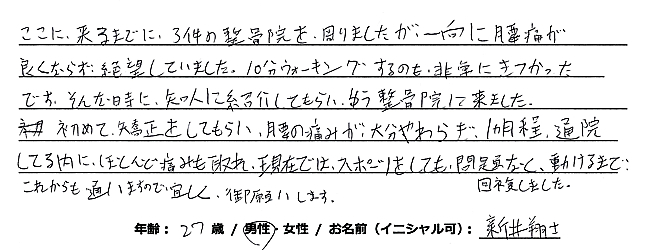 ここに、来るまでに、3件の整骨院を、回りましたが、一向に腰痛が
良くならず絶望していました。10分ウォーキングするのも、非常にきつかった
です。そんな時に、知人に紹介してもらい、ゆう整骨院に来ました。
初めて、矯正をしてもらい、腰の痛みが、大分やわらぎ、1ヵ月程、通院
してる内に、ほとんど痛みも取れ、現在では、スポーツをしても、問題なく、動けるまで
回復しました。
これからも通いますので宜しく、御願いします。
年齢：27歳 / 男性・女性 / お名前（イニシャル可）：新井翔士